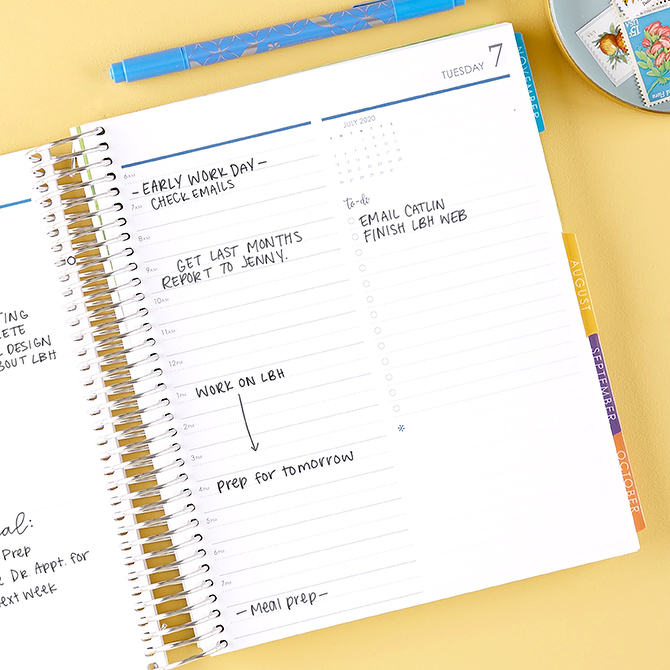 TING
LETE
DESIGN
BOUT LBH
al:
Prep
Dr. Appt. for
ext week
TUESDAY 7
6AM
-EARLY WORK DAY-
7AM CHECK EMAILS
8AM
9AM GET LAST MONTHS
REPORT TO JENNY.
10AM
11AM
12PM
1PM WORK ON LBH
2PM
3PM
4PM Prep for tomorrow
5PM
6PM
7PM
-Meal prep-
JULY 2020
to-do
EMAIL CATLIN
FINISH LBH WEB
*
NOVEMBER
AUGUST
SEPTEMBER
OCTOBER
15c